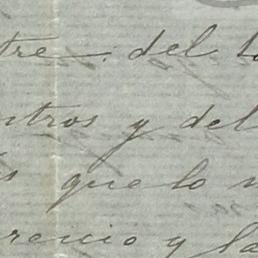 tre. del
ntros y del
s que lo
rencio y la